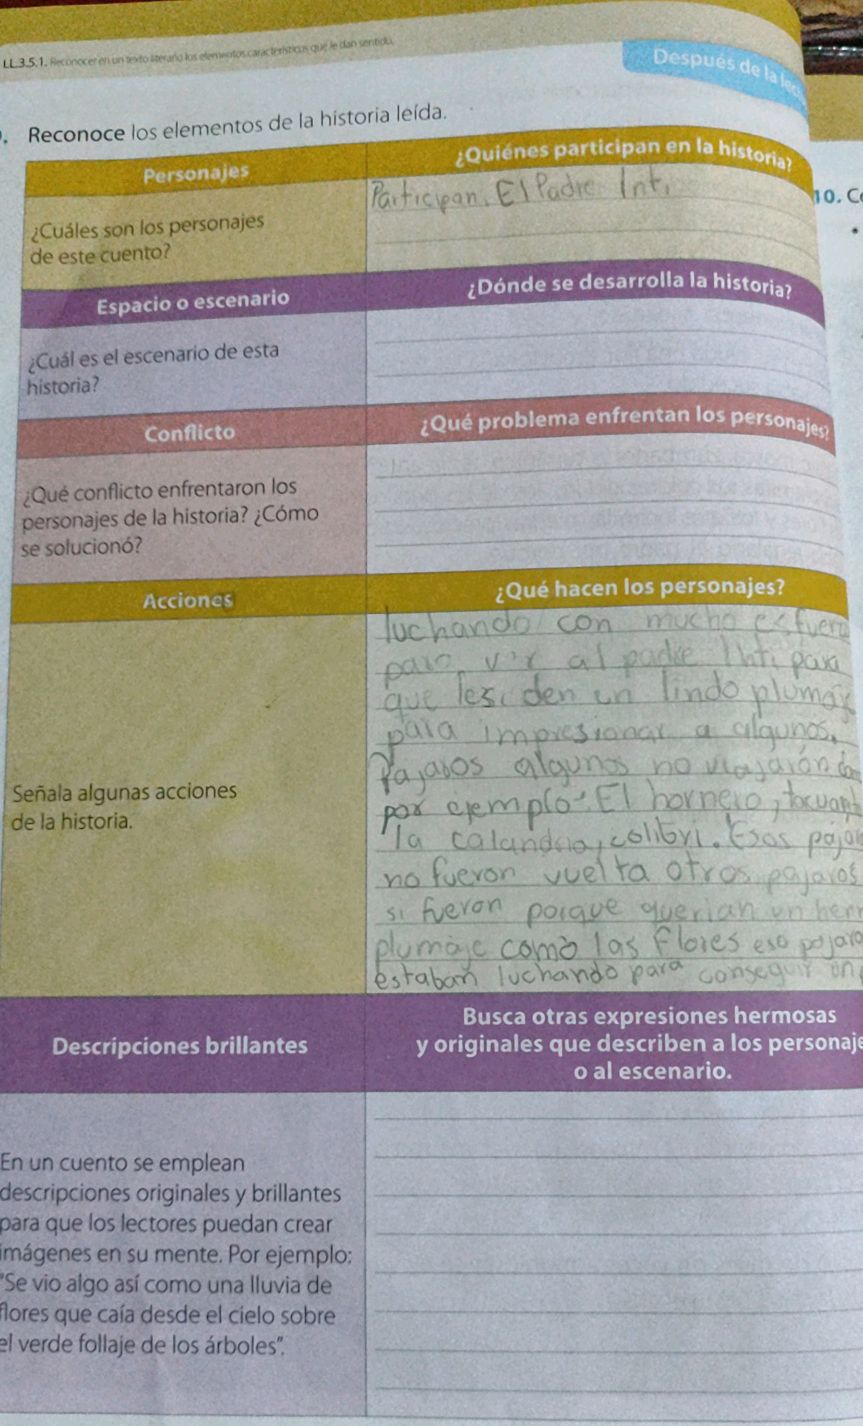 LL.3.5.1. Reconocer en un texto literario los elementos característicos que le dan sentido.
Después de la
Reconoce los elementos de la historia leída.
Personajes
¿Quiénes participan en la historia?
¿Cuáles son los personajes
de este cuento?
Participan. El Padre Inti
10.
Espacio o escenario
¿Dónde se desarrolla la historia?
¿Cuál es el escenario de esta
historia?
Conflicto
¿Qué problema enfrentan los personajes?
¿Qué conflicto enfrentaron los
personajes de la historia? ¿Cómo
se solucionó?
Acciones
¿Qué hacen los personajes?
Señala algunas acciones
de la historia.
luchando con mucho esfuerz
para vir al padre Inti para
que les den un lindo plumaje
para impresionar a algunos.
Pajaros algunos no viajaron
por ejemplo: El hornero,
la calandria, colibri. Esos
no fueron vuelta otros pajaros
si fueron porque querian un
plumaje como las flores eso
estaban luchando para conseguir un
Descripciones brillantes
Busca otras expresiones hermosas
y originales que describen a los personaje
o al escenario.
En un cuento se emplean
descripciones originales y brillantes
para que los lectores puedan crear
imágenes en su mente. Por ejemplo:
"Se vio algo así como una lluvia de
flores que caía desde el cielo sobre
el verde follaje de los árboles".